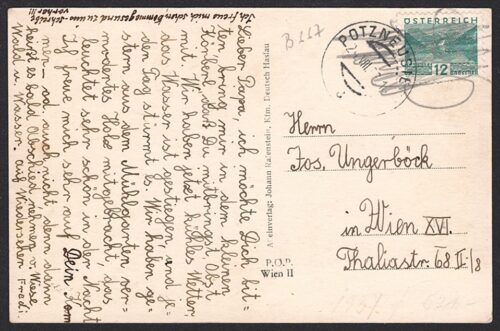 Ich freue mich schon Donnerstag und zu uns schreibe vorher!!!
Lieben Papa, ich möchte Dich bit-
ten bring mir in dem kleinen
Körberl das Du mitbringst Obst
mit. Wir haben jetzt kühles Wetter,
das Wasser ist gestiegen, und je-
den Tag stürmt es. Wir haben ge-
stern aus dem Mühlgarten ver-
modertes Holz mitgebracht, das
leuchtet sehr schön in der Nacht
Ich freue mich sehr auf Dein Kom
men - ob auch nicht denn dann
heißt es bald Abschied nehmen v. Wiese
Wald u. Wasser. auf Wiedersehen
Fredi.
B 227
Alleinverlag: Johann Rafenstein, Kfm. Deutsch Haslau
P.O.P.
Wien II
POTZNEUSIEDL
ÖSTERREICH
12 GROSCHEN
Herrn
Jos. Ungerböck
in Wien XVI.
Thaliastr. 68 II/8